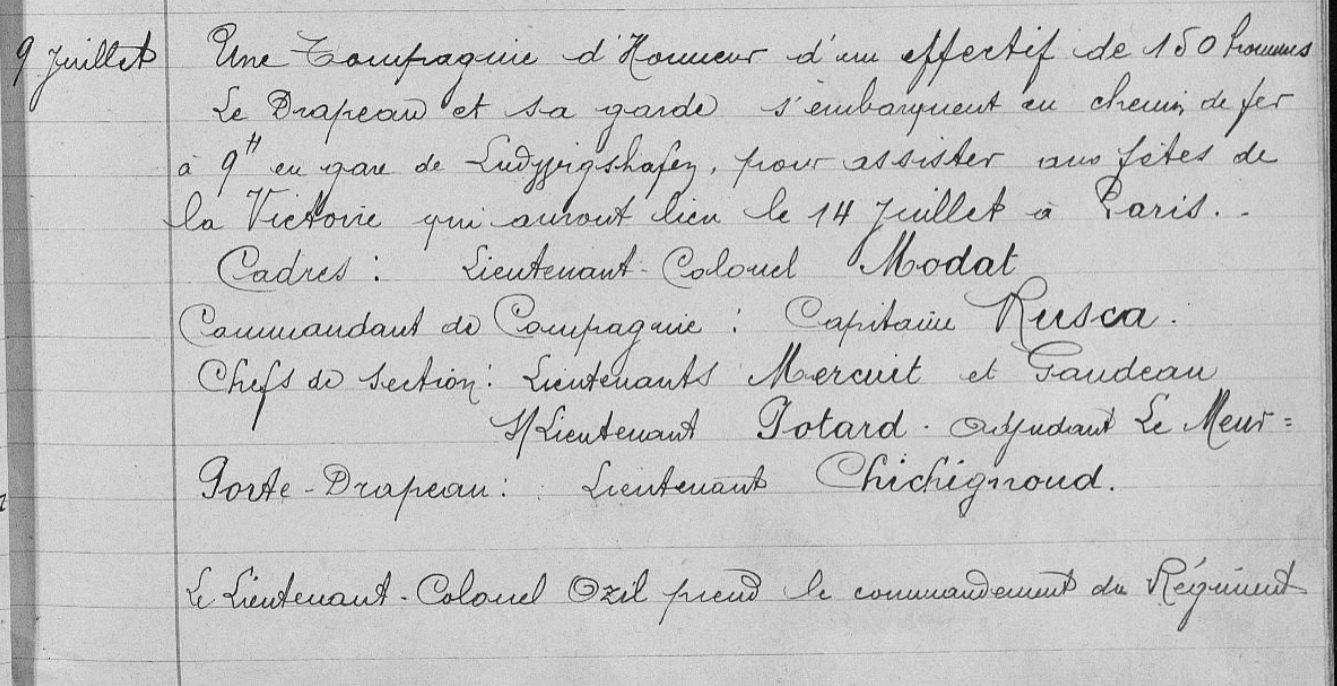 9 Juillet Une Compagnie d'Honneur d'un effectif de 150 hommes
Le Drapeau et sa garde s'embarquent en chemin de fer
à 9H en gare de Ludwigshafen, pour assister aux fêtes de
la Victoire qui auront lieu le 14 Juillet à Paris. -
Cadres : Lieutenant-Colonel Modat
Commandant de Compagnie : Capitaine Rusca.
Chefs de Section : Lieutenants Mercuit et Gaudeau
S/Lieutenant Potard. Adjudant Le Meur =
Porte-Drapeau : Lieutenant Chichignoud.
Le Lieutenant-Colonel Ozil prend le commandement du Régiment